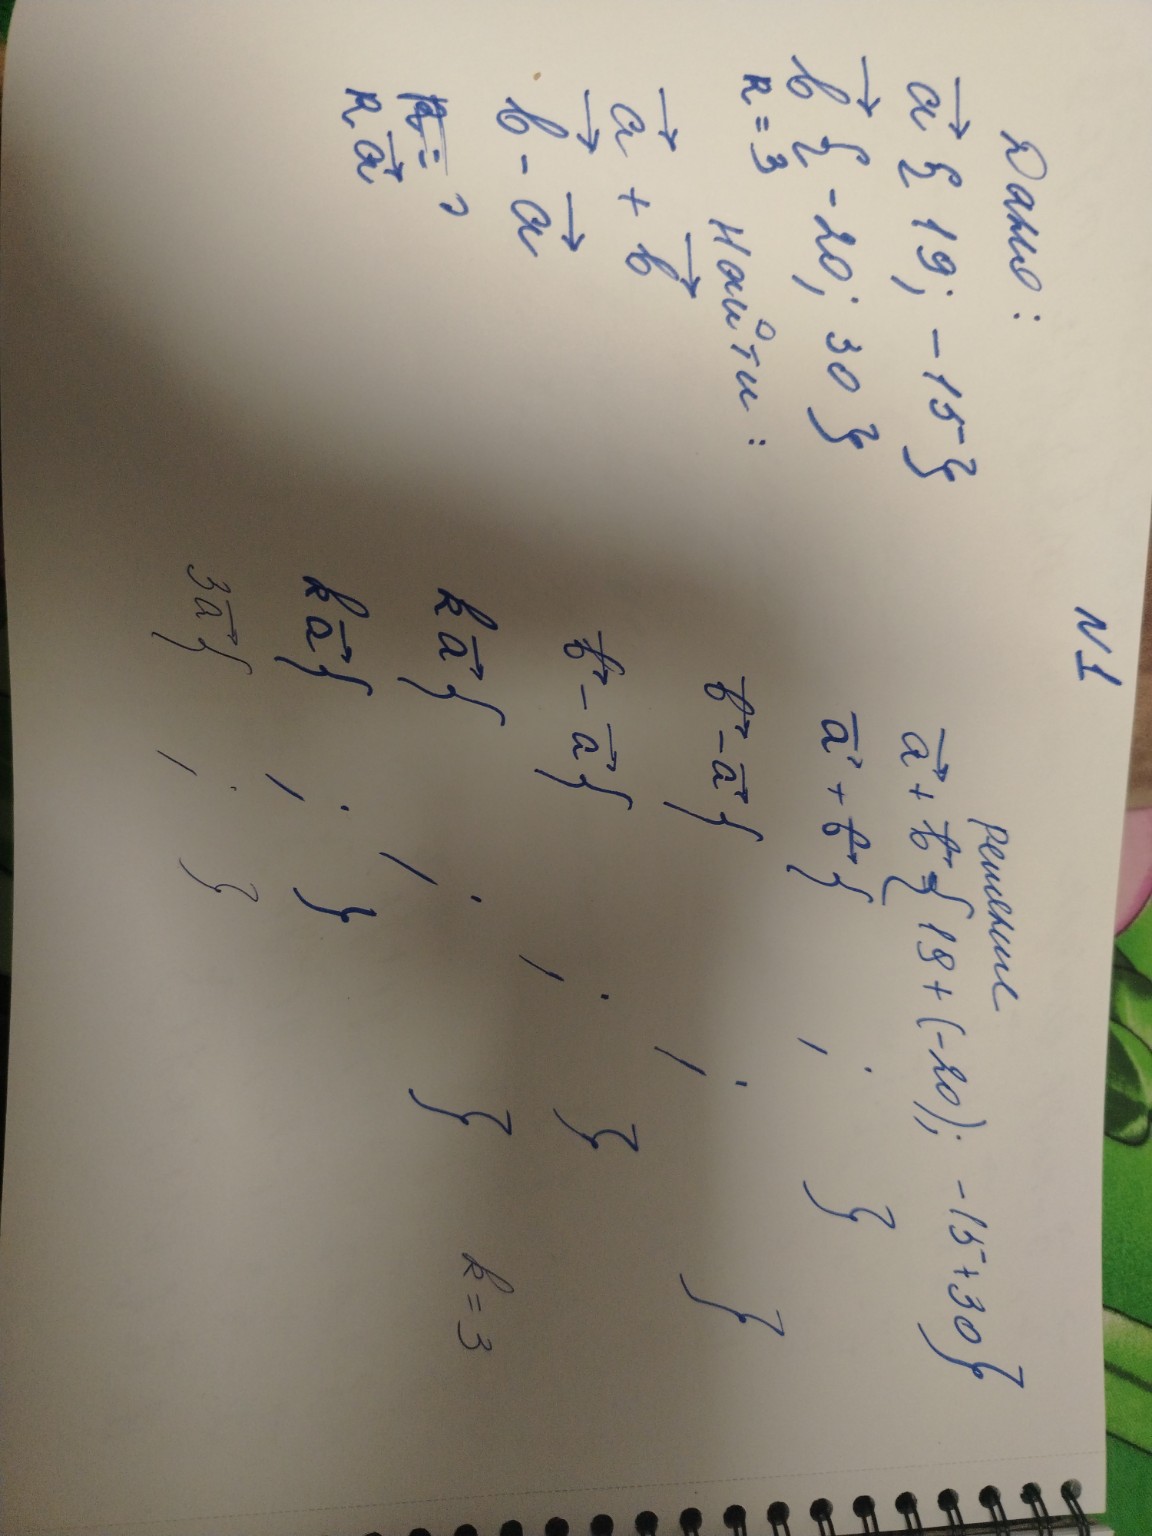 N1
Дано:
a⃗ { 19; -15}
b⃗ { -20; 30 }
к = 3
Найти:
a⃗ + b⃗
b⃗ - a⃗
к a⃗ ?
Решение
a⃗ + b⃗ = { 19 + (-20); -15 + 30}
a⃗ + b⃗ { ; }
b⃗ - a⃗ { ; }
b⃗ - a⃗ { ; }
k a⃗ { ; } k = 3
k a⃗ { ; }
3a⃗ { ; }